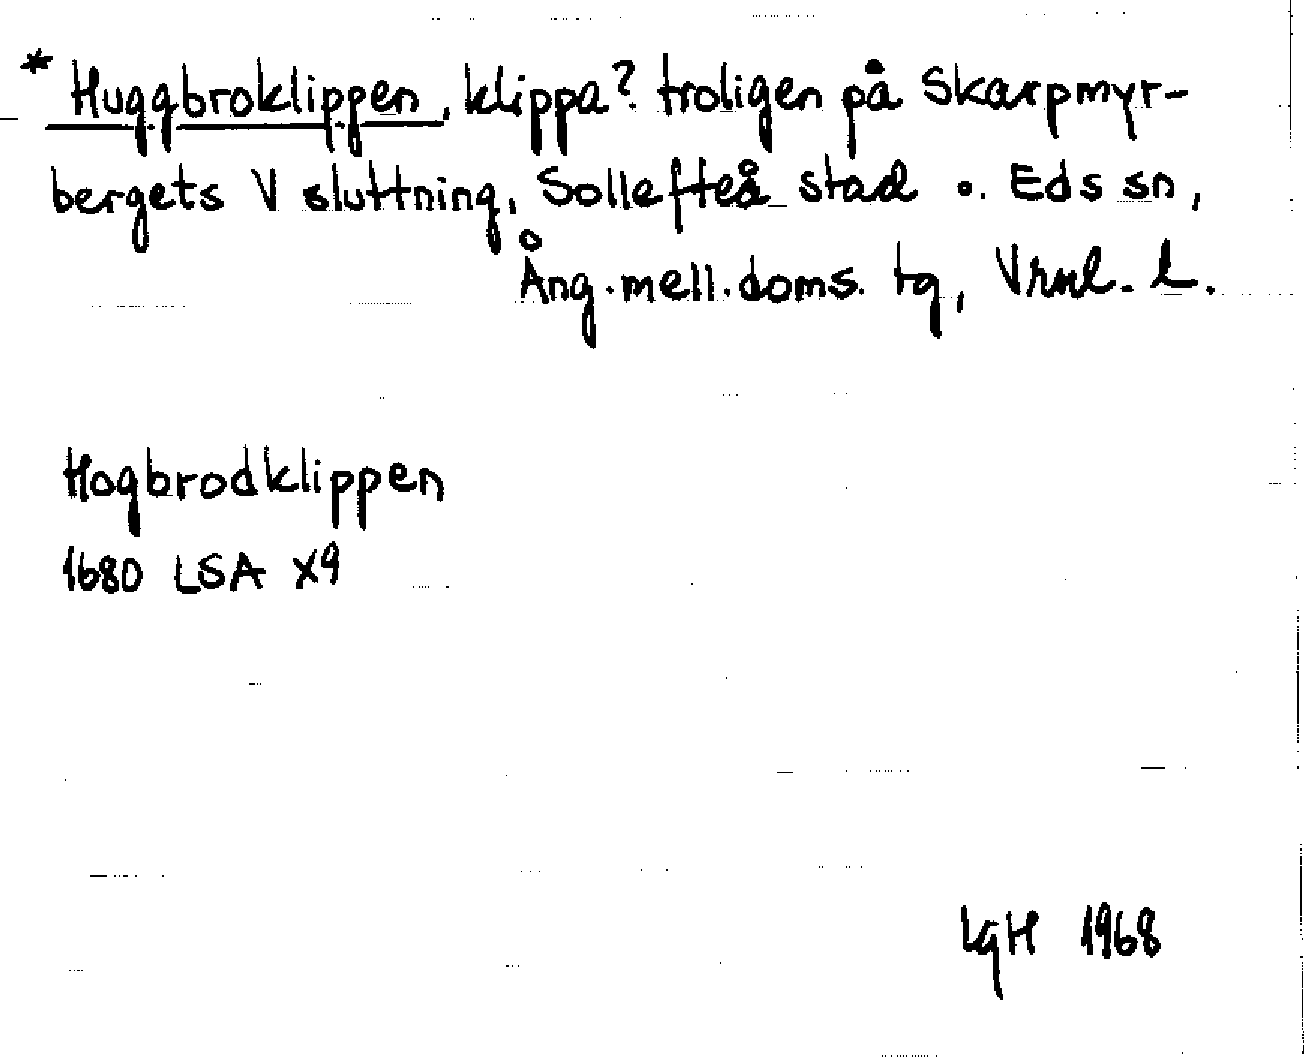 * Huggbroklippen, klippa? troligen på Skarpmyr-
bergets V sluttning, Sollefteå stad o. Eds sn,
Ång. mell. doms. tg, Vrnl. l.
Hogbrodklippen
1680 LSA X9
LgH 1968